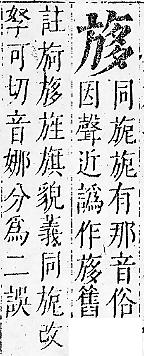 㫊
同旎旎有那音俗
因聲近譌作㫊舊
註旖㫊旌旗貌義同旎改
拏可切音娜分爲二誤